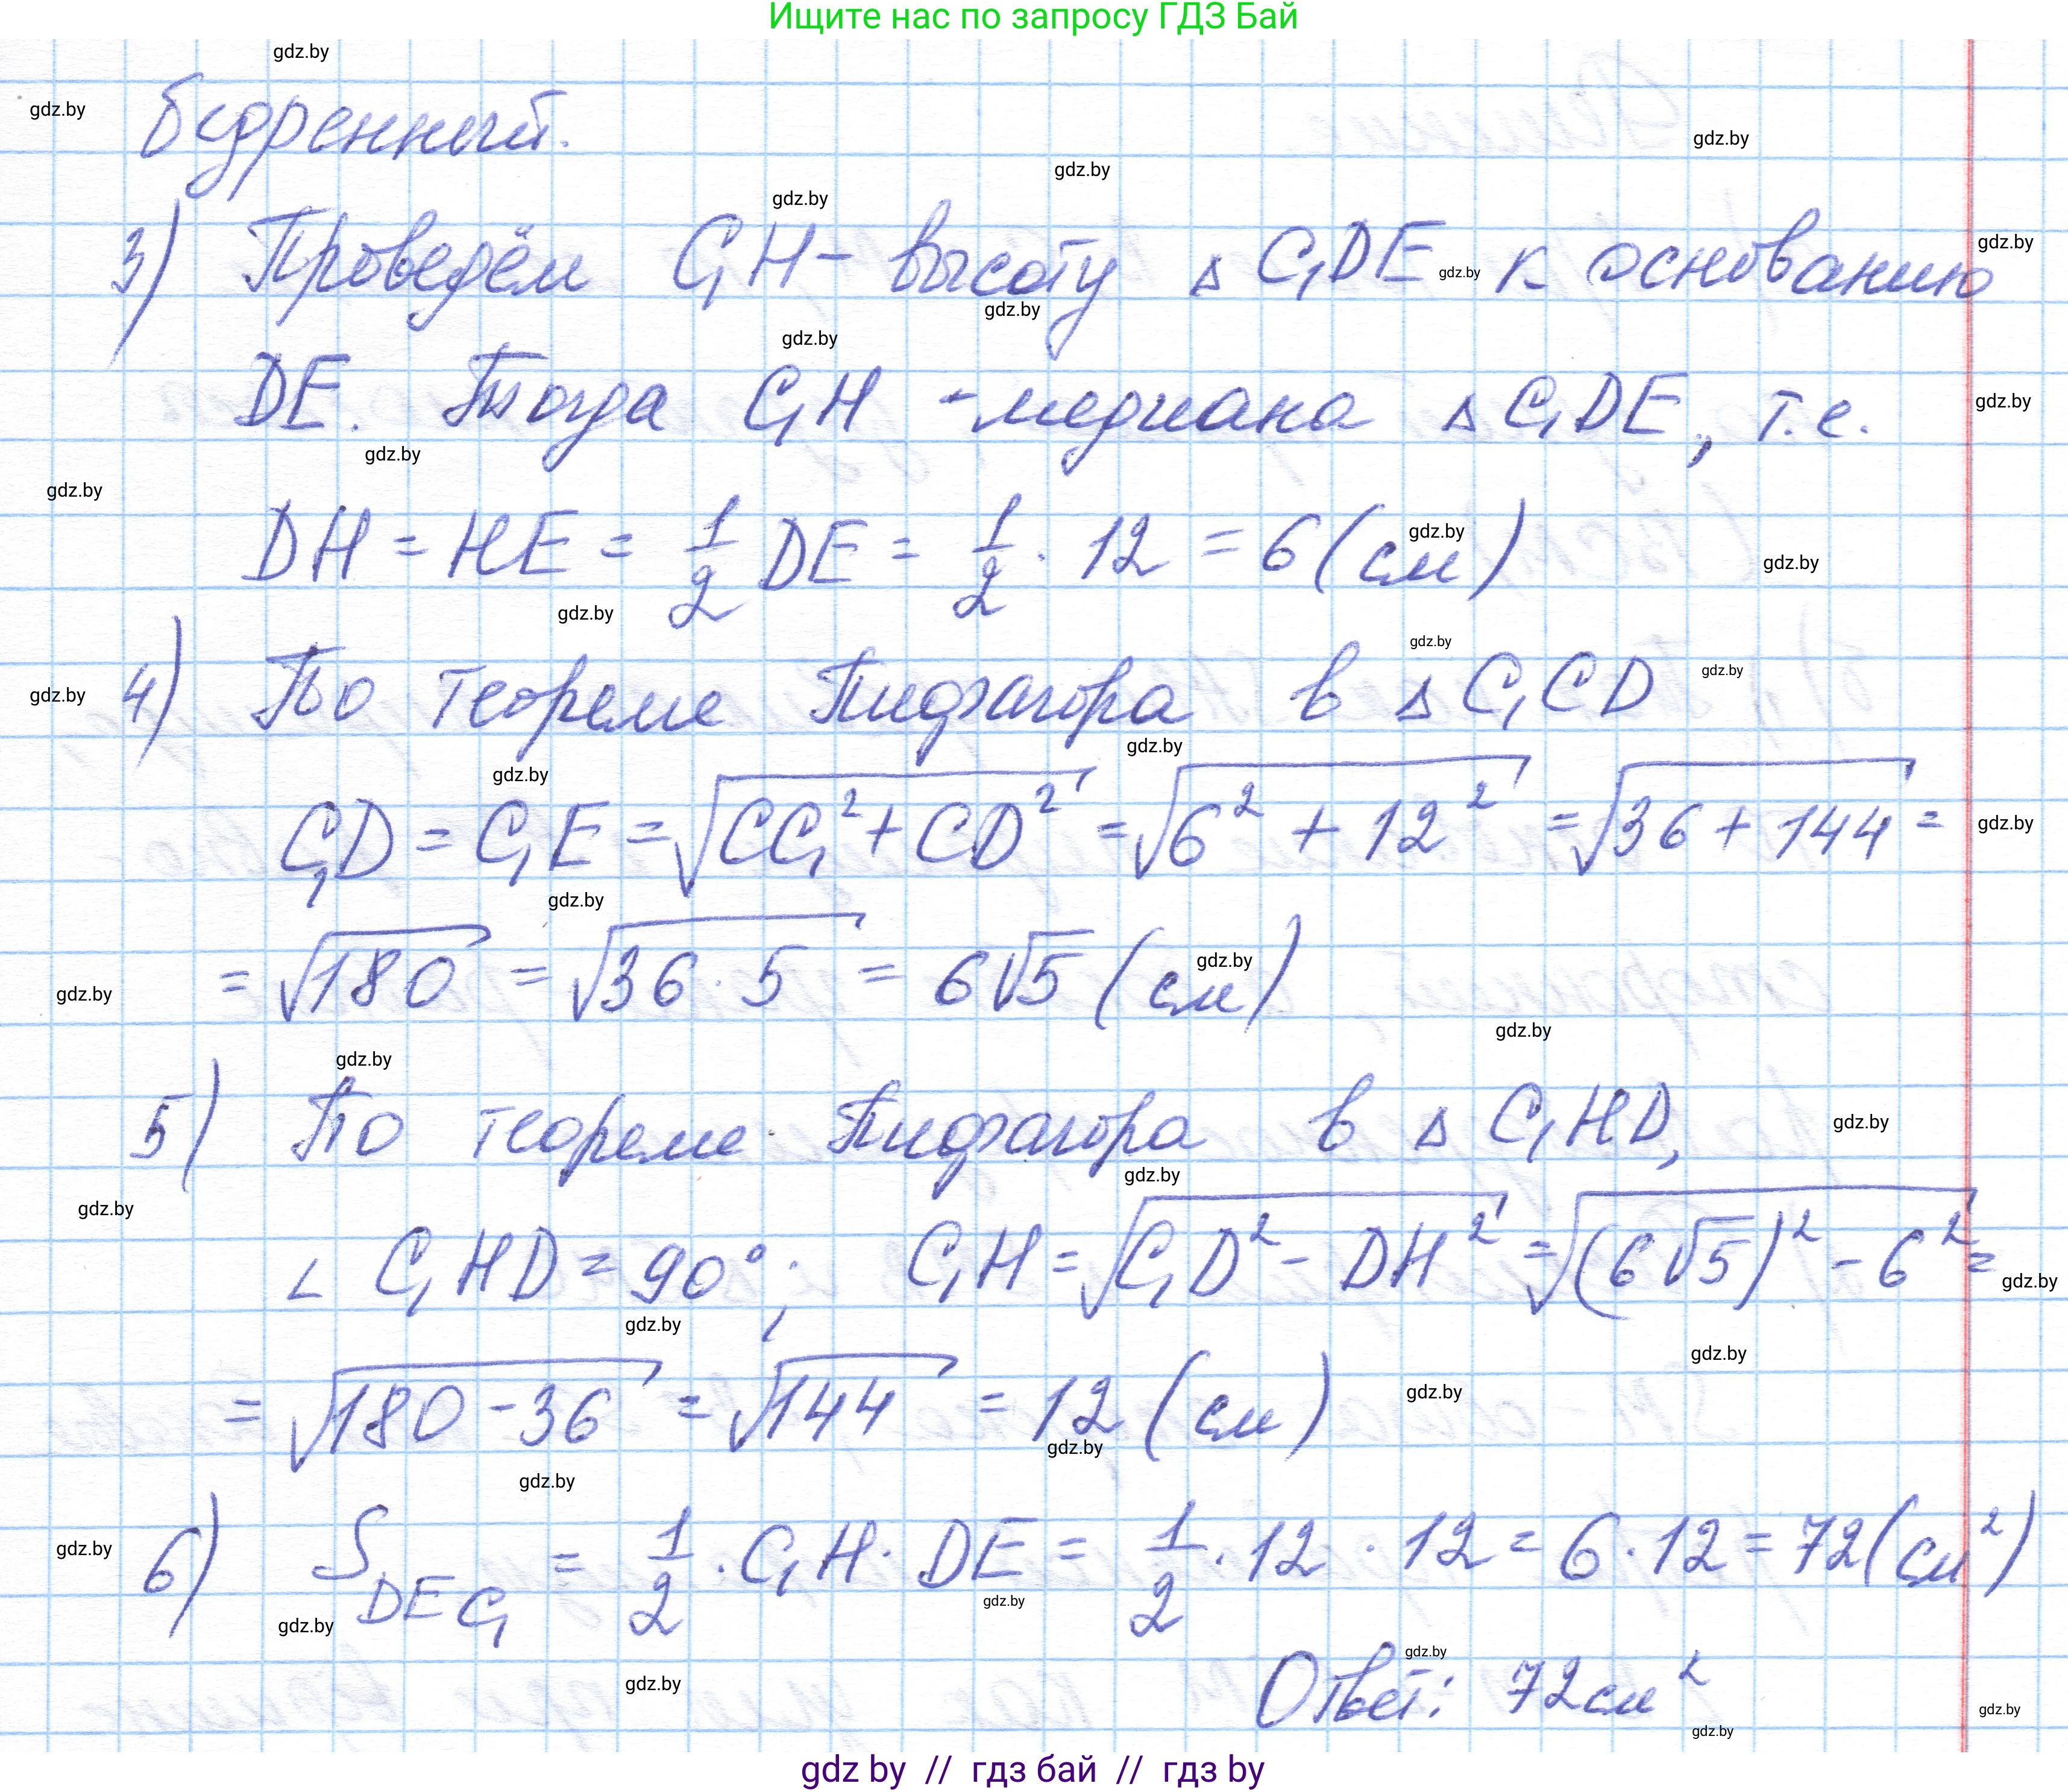 Ищите нас по запросу ГДЗ Бай
бедренный.
3) Проведём C₁H – высоту Δ C₁DE к основанию
DE. Тогда C₁H - медиана Δ C₁DE, т.е.
DH = HE = 1/2 DE = 1/2 · 12 = 6 (см)
4) По теореме Пифагора в Δ C₁CD
C₁D = C₁E = √(CC₁² + CD²) = √(6² + 12²) = √(36 + 144) =
= √180 = √(36 · 5) = 6√5 (см)
5) По теореме Пифагора в Δ C₁HD,
∠ C₁HD = 90°; C₁H = √(C₁D² - DH²) = √((6√5)² - 6²) =
= √(180 - 36) = √144 = 12 (см)
6) S DEC₁ = 1/2 · C₁H · DE = 1/2 · 12 · 12 = 6 · 12 = 72 (см²)
Ответ: 72 см²
gdz by // гдз бай // гдз by